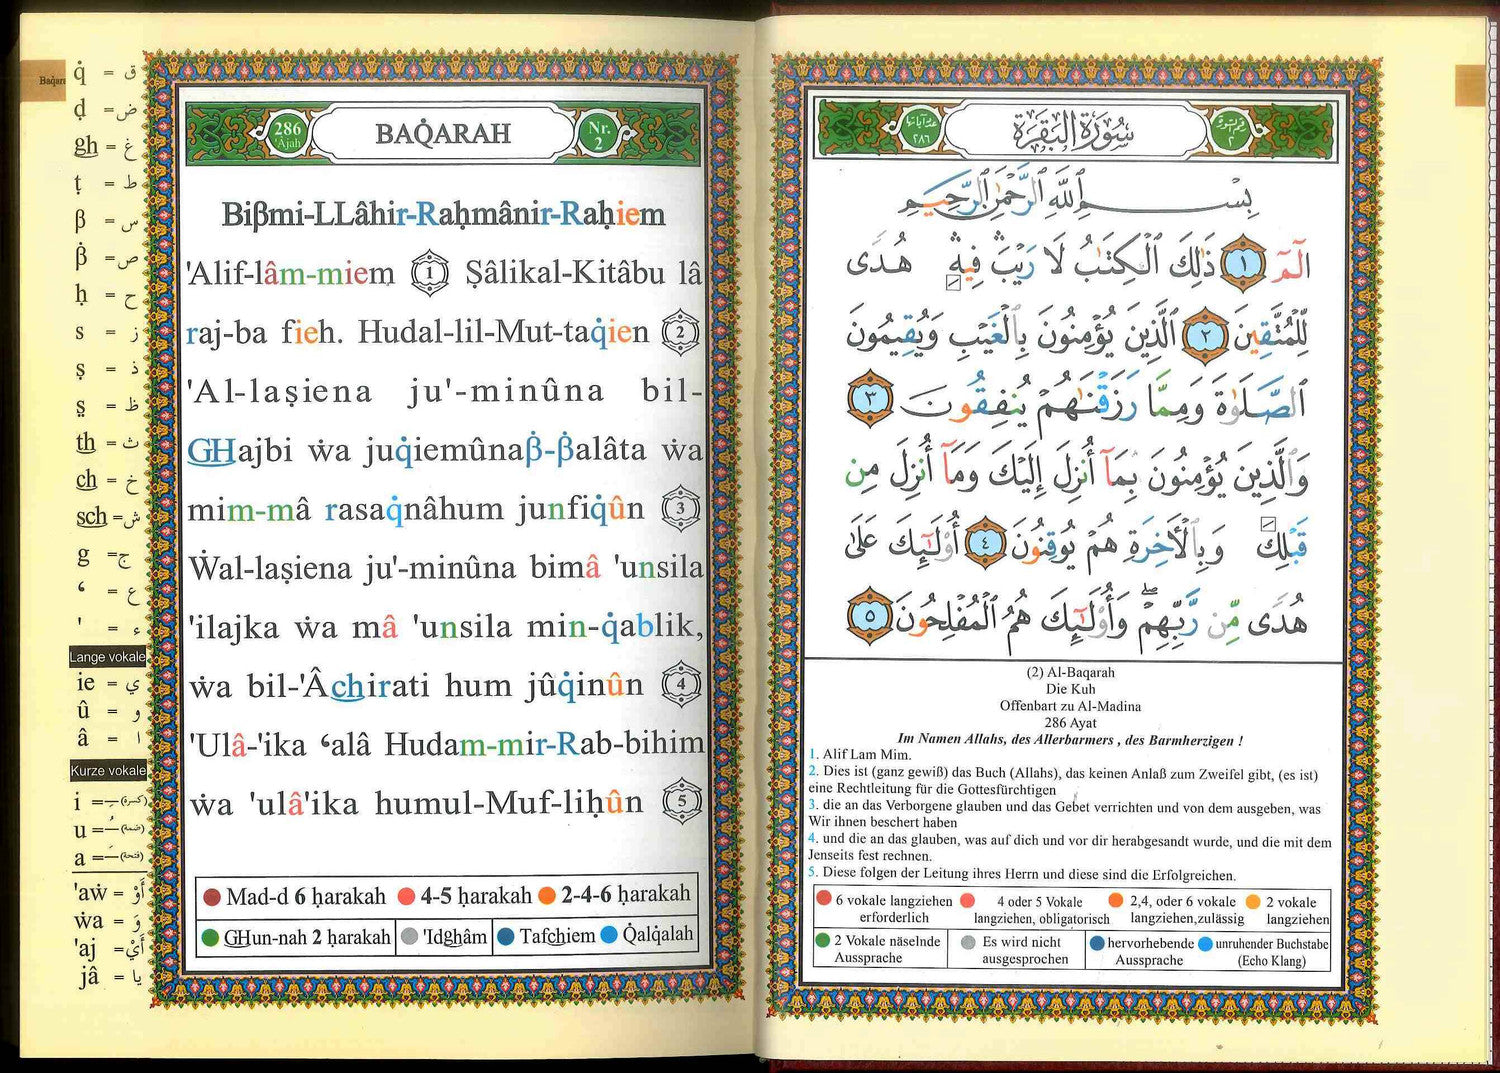 Baqara
q̇ = ق
ḍ = ض
gh = غ
ṭ = ط
β = س
β̇ = ص
ḥ = ح
s = ز
ṣ = ذ
s̤ = ظ
th = ث
ch = خ
sch = ش
g = ج
ʻ = ع
' = ء
Lange vokale
ie = ي
û = و
â = ا
Kurze vokale
i = ـِ (كسرة)
u = ـُ (ضمة)
a = ـَ (فتحة)
'aẇ = أَوْ
ẇa = وَ
'aj = أَيْ
jâ = يا
286 'Âjah
BAQ̇ARAH
Nr. 2
Biβmi-LLâhir-Raḥmânir-Raḥiem
'Alif-lâm-miem 1 Ṣâlikal-Kitâbu lâ
raj-ba fieh. Hudal-lil-Mut-taq̇ien 2
'Al-laṣiena ju'-minûna bil-
GHajbi ẇa juq̇iemûnaβ̇-β̇alâta ẇa
mim-mâ rasaq̇nâhum junfiq̇ûn 3
Ẇal-laṣiena ju'-minûna bimâ 'unsila
'ilajka ẇa mâ 'unsila min-q̇ablik,
ẇa bil-'Âchirati hum jûq̇inûn 4
'Ulâ-'ika ʻalâ Hudam-mir-Rab-bihim
ẇa 'ulâ'ika humul-Muf-liḥûn 5
Mad-d 6 ḥarakah 4-5 ḥarakah 2-4-6 ḥarakah
GHun-nah 2 ḥarakah 'Idghâm Tafchiem Q̇alq̇alah
عدد آياتها ٢٨٦
سُورَةُ البَقَرَة
رقم السورة ٢
بِسْمِ اللَّهِ الرَّحْمَٰنِ الرَّحِيمِ
الٓمٓ ١ ذَٰلِكَ الْكِتَٰبُ لَا رَيْبَ فِيهِ هُدًى
لِّلْمُتَّقِينَ ٢ الَّذِينَ يُؤْمِنُونَ بِالْغَيْبِ وَيُقِيمُونَ
الصَّلَوٰةَ وَمِمَّا رَزَقْنَٰهُمْ يُنفِقُونَ ٣
وَالَّذِينَ يُؤْمِنُونَ بِمَآ أُنزِلَ إِلَيْكَ وَمَآ أُنزِلَ مِن
قَبْلِكَ وَبِالْأَخِرَةِ هُمْ يُوقِنُونَ ٤ أُوْلَٰٓئِكَ عَلَىٰ
هُدًى مِّن رَّبِّهِمْ وَأُوْلَٰٓئِكَ هُمُ الْمُفْلِحُونَ ٥
(2) Al-Baqarah
Die Kuh
Offenbart zu Al-Madina
286 Ayat
Im Namen Allahs, des Allerbarmers , des Barmherzigen !
1. Alif Lam Mim.
2. Dies ist (ganz gewiß) das Buch (Allahs), das keinen Anlaß zum Zweifel gibt, (es ist)
eine Rechtleitung für die Gottesfürchtigen
3. die an das Verborgene glauben und das Gebet verrichten und von dem ausgeben, was
Wir ihnen beschert haben
4. und die an das glauben, was auf dich und vor dir herabgesandt wurde, und die mit dem
Jenseits fest rechnen.
5. Diese folgen der Leitung ihres Herrn und diese sind die Erfolgreichen.
6 vokale langziehen erforderlich
4 oder 5 Vokale langziehen, obligatorisch
2,4, oder 6 vokale langziehen,zulässig
2 vokale langziehen
2 Vokale näselnde Aussprache
Es wird nicht ausgesprochen
hervorhebende Aussprache
unruhender Buchstabe (Echo Klang)